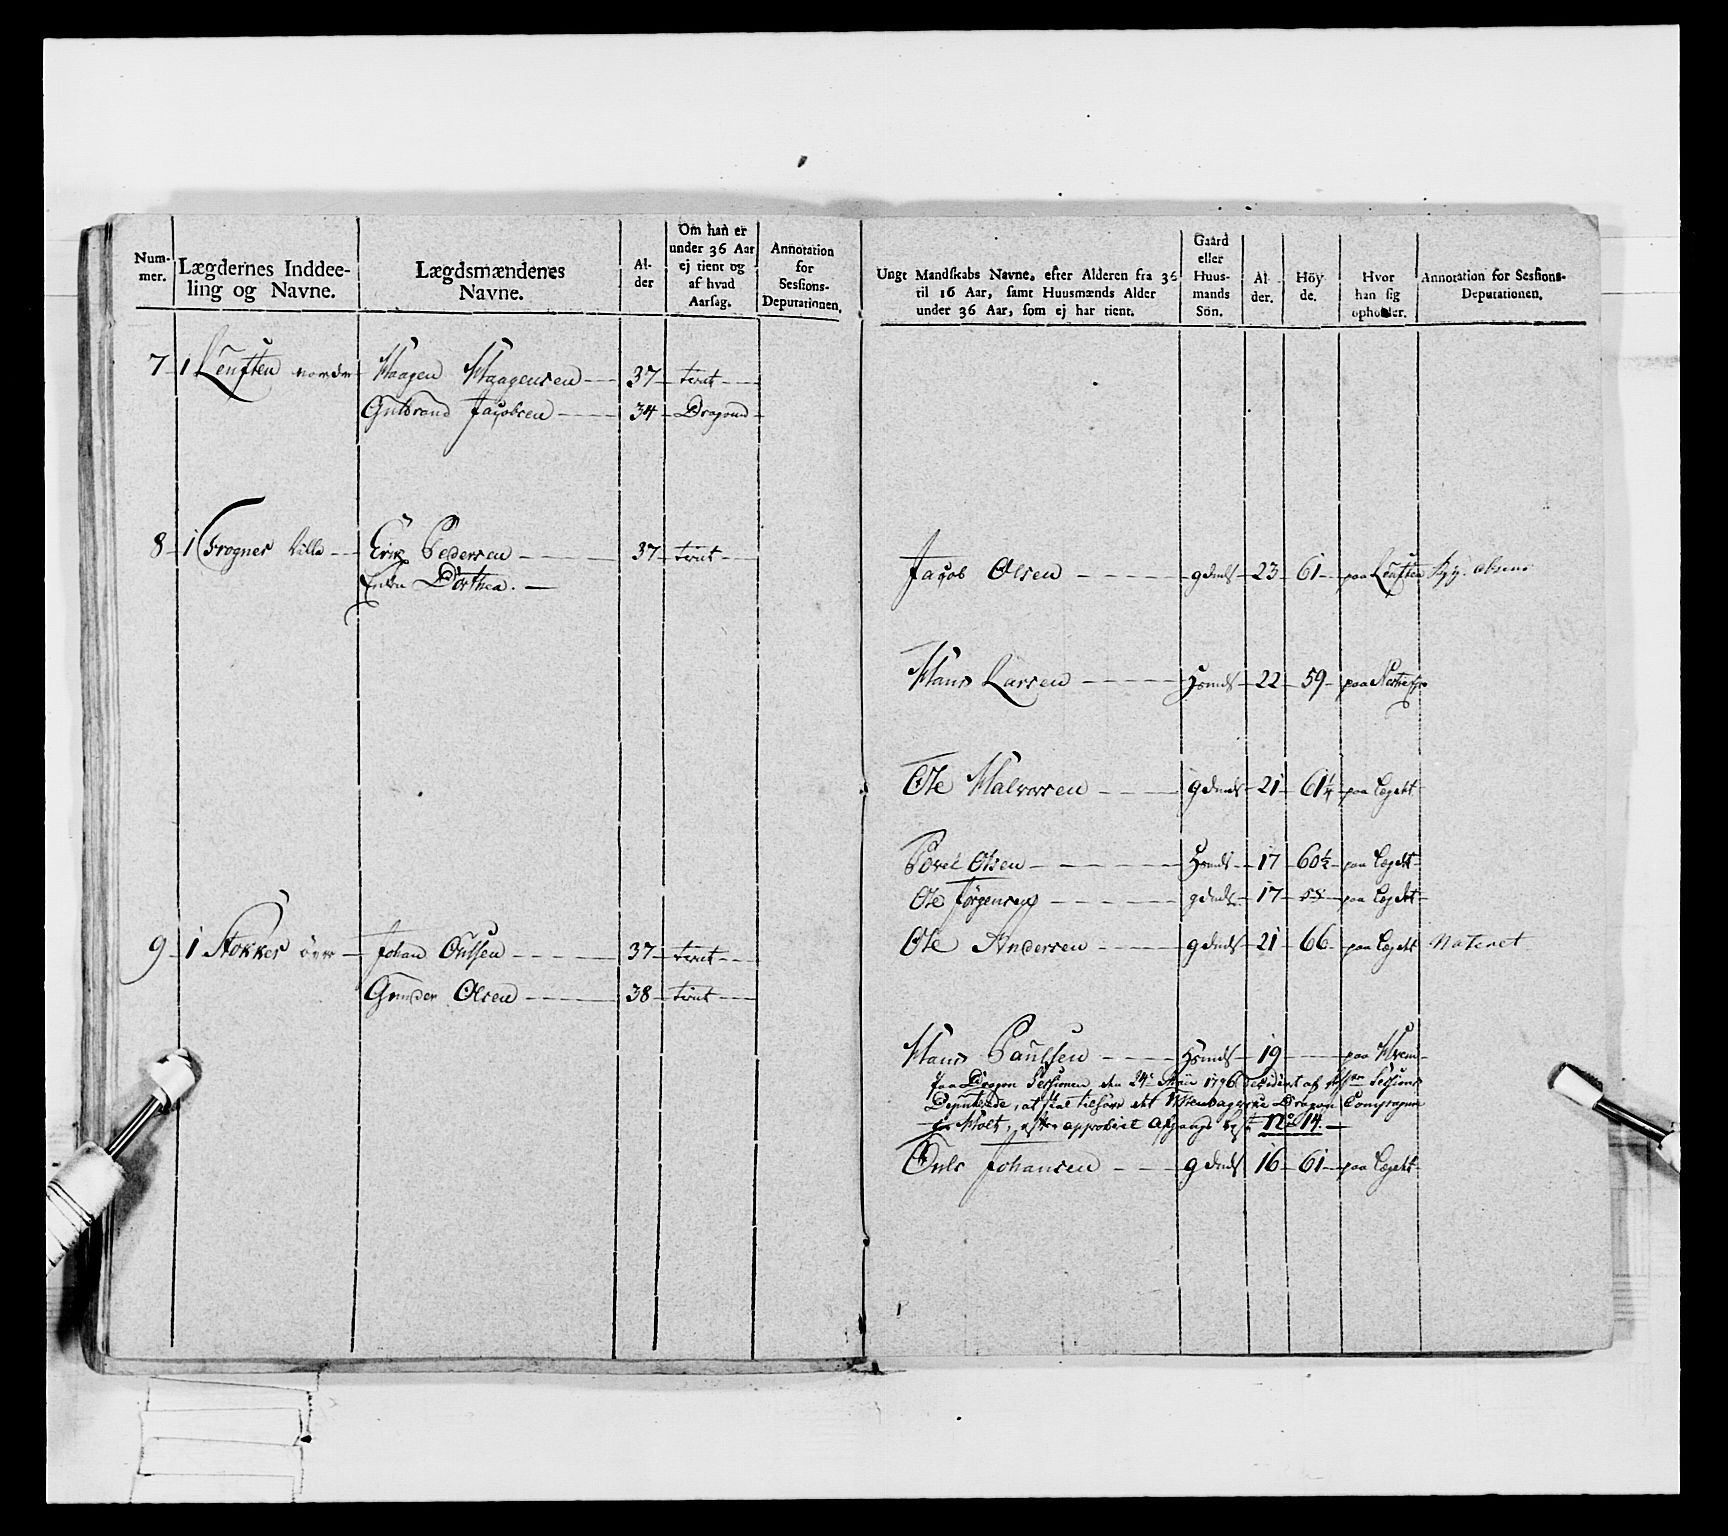 Num-
mer.
Lægdernes Inddee-
ling og Navne.
Lægdsmændenes
Navne.
Al-
der
Om han er
under 36 Aar
ej tient og
af hvad
Aarsag.
Annotation
for
Sessions-
Deputationen.
7 1 Leuften nordre Haagen Haagensen 37 tient
Gulbrand Jacobsen 34 Dragoun
8 1 Frogner lille Erik Pedersen 37 tient
Enke Dorthea.
9 1 Stokker över Johan Oulsen 37 tient
Gunder Olsen 38 tient
Ungt Mandskabs Navne, efter Alderen fra 36
til 16 Aar, samt Huusmænds Alder
under 36 Aar, som ej har tient.
Gaard
eller
Huus-
mands
Sön.
Al-
der.
Höy-
de.
Hvor
han sig
opholder.
Annotation for Sessions-
Deputationen.
Jacob Olsen gdmds 23 61 paa Leuften
Hans Larsen Hsmds 22 59 paa
Ole Halvorsen gdmds 21 61¼ paa Lægdet
Povel Olsen Hsmds 17 60½ paa Lægdet
Ole Jörgensen gdmds 17 58 paa Lægdet
Ole Andersen gdmds 21 66 paa Lægdet Nateret
Hans Paulsen Hsmds 19 paa Hvem
paa Dragon Sessionen den 24de 1796 decideret af Sessions
Deputerede, at skal tilhöre det Dragon Compagnie
approberet Afgangs No 14.
Ouls Johansen gdmds 16 61 paa Lægdet